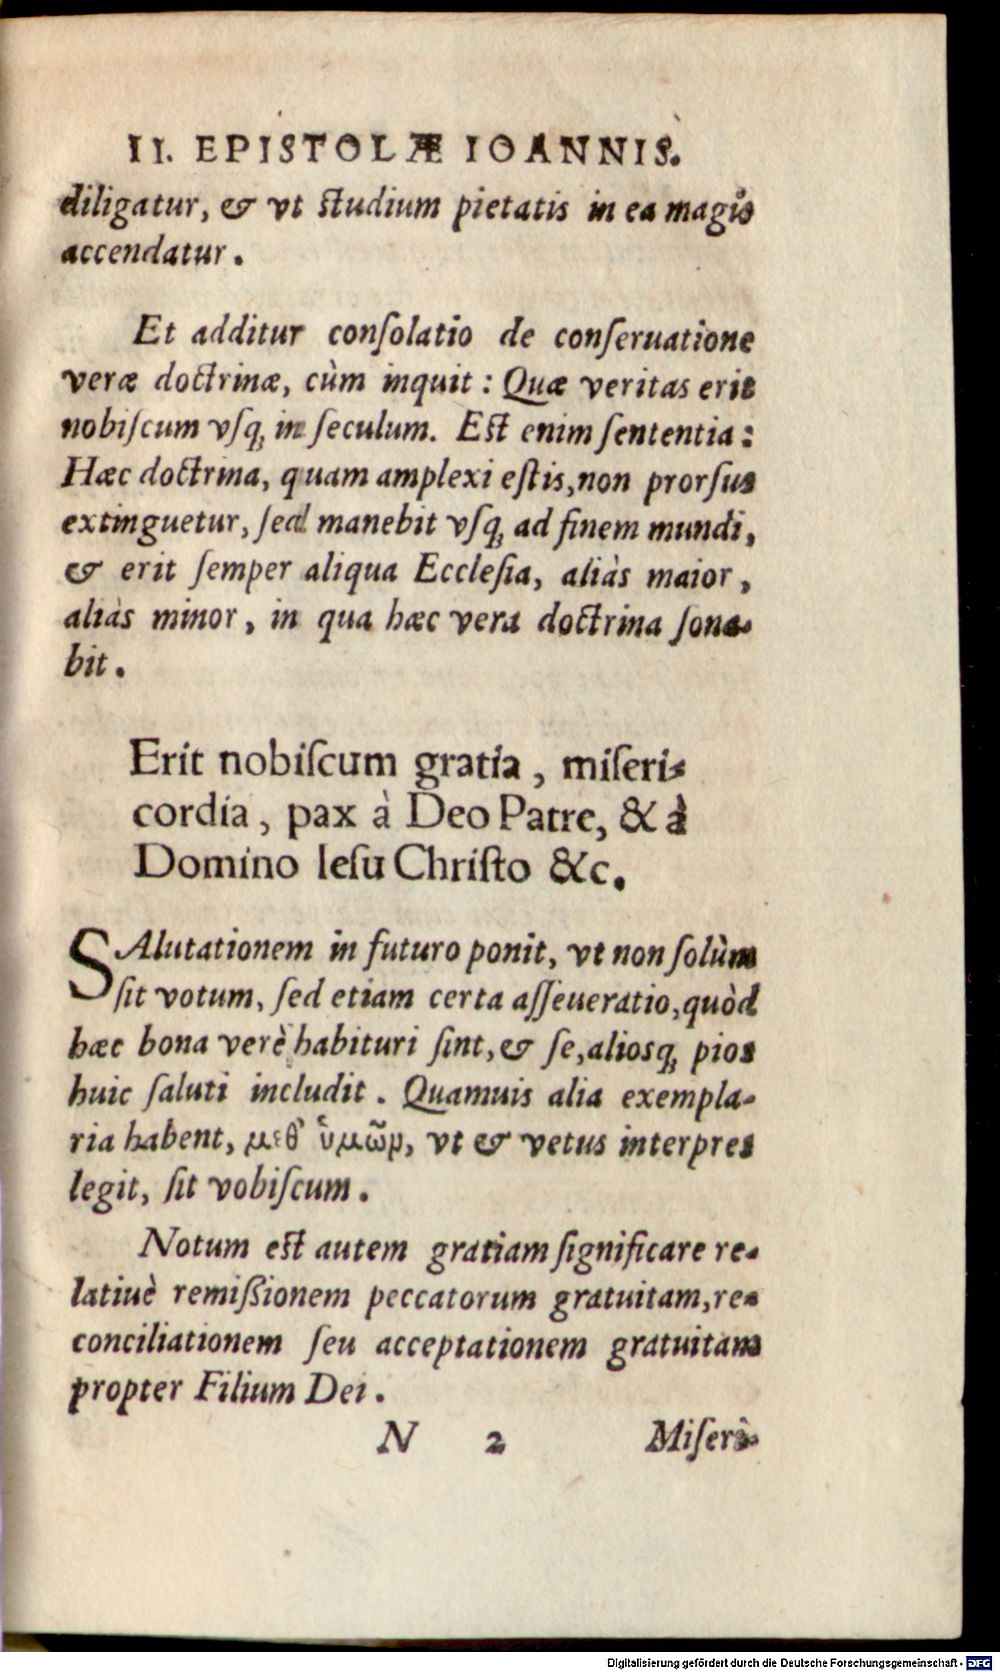 II. EPISTOLÆ IOANNIS.
diligatur, & vt ſtudium pietatis in ea magis
accendatur.
Et additur conſolatio de conſeruatione
veræ doctrinæ, cùm inquit: Quæ veritas erit
nobiſcum vſq; in ſeculum. Eſt enim ſententia:
Hæc doctrina, quam amplexi eſtis, non prorſus
extinguetur, ſed manebit vſq; ad finem mundi,
& erit ſemper aliqua Eccleſia, aliàs maior,
aliàs minor, in qua hæc vera doctrina ſona-
bit.
Erit nobiſcum gratia, miſeri-
cordia, pax à Deo Patre, & à
Domino Ieſu Chriſto &c.
SAlutationem in futuro ponit, vt non ſolùm
ſit votum, ſed etiam certa aſſeueratio, quòd
hæc bona verè habituri ſint, & ſe, aliosq; pios
huic ſaluti includit. Quamuis alia exempla-
ria habent, μεθ' ὑμῶν, vt & vetus interpres
legit, ſit vobiſcum.
Notum eſt autem gratiam ſignificare re-
latiuè remißionem peccatorum gratuitam, re-
conciliationem ſeu acceptationem gratuitam
propter Filium Dei.
N 2 Miſeri-
Digitalisierung gefördert durch die Deutsche Forschungsgemeinschaft - DFG